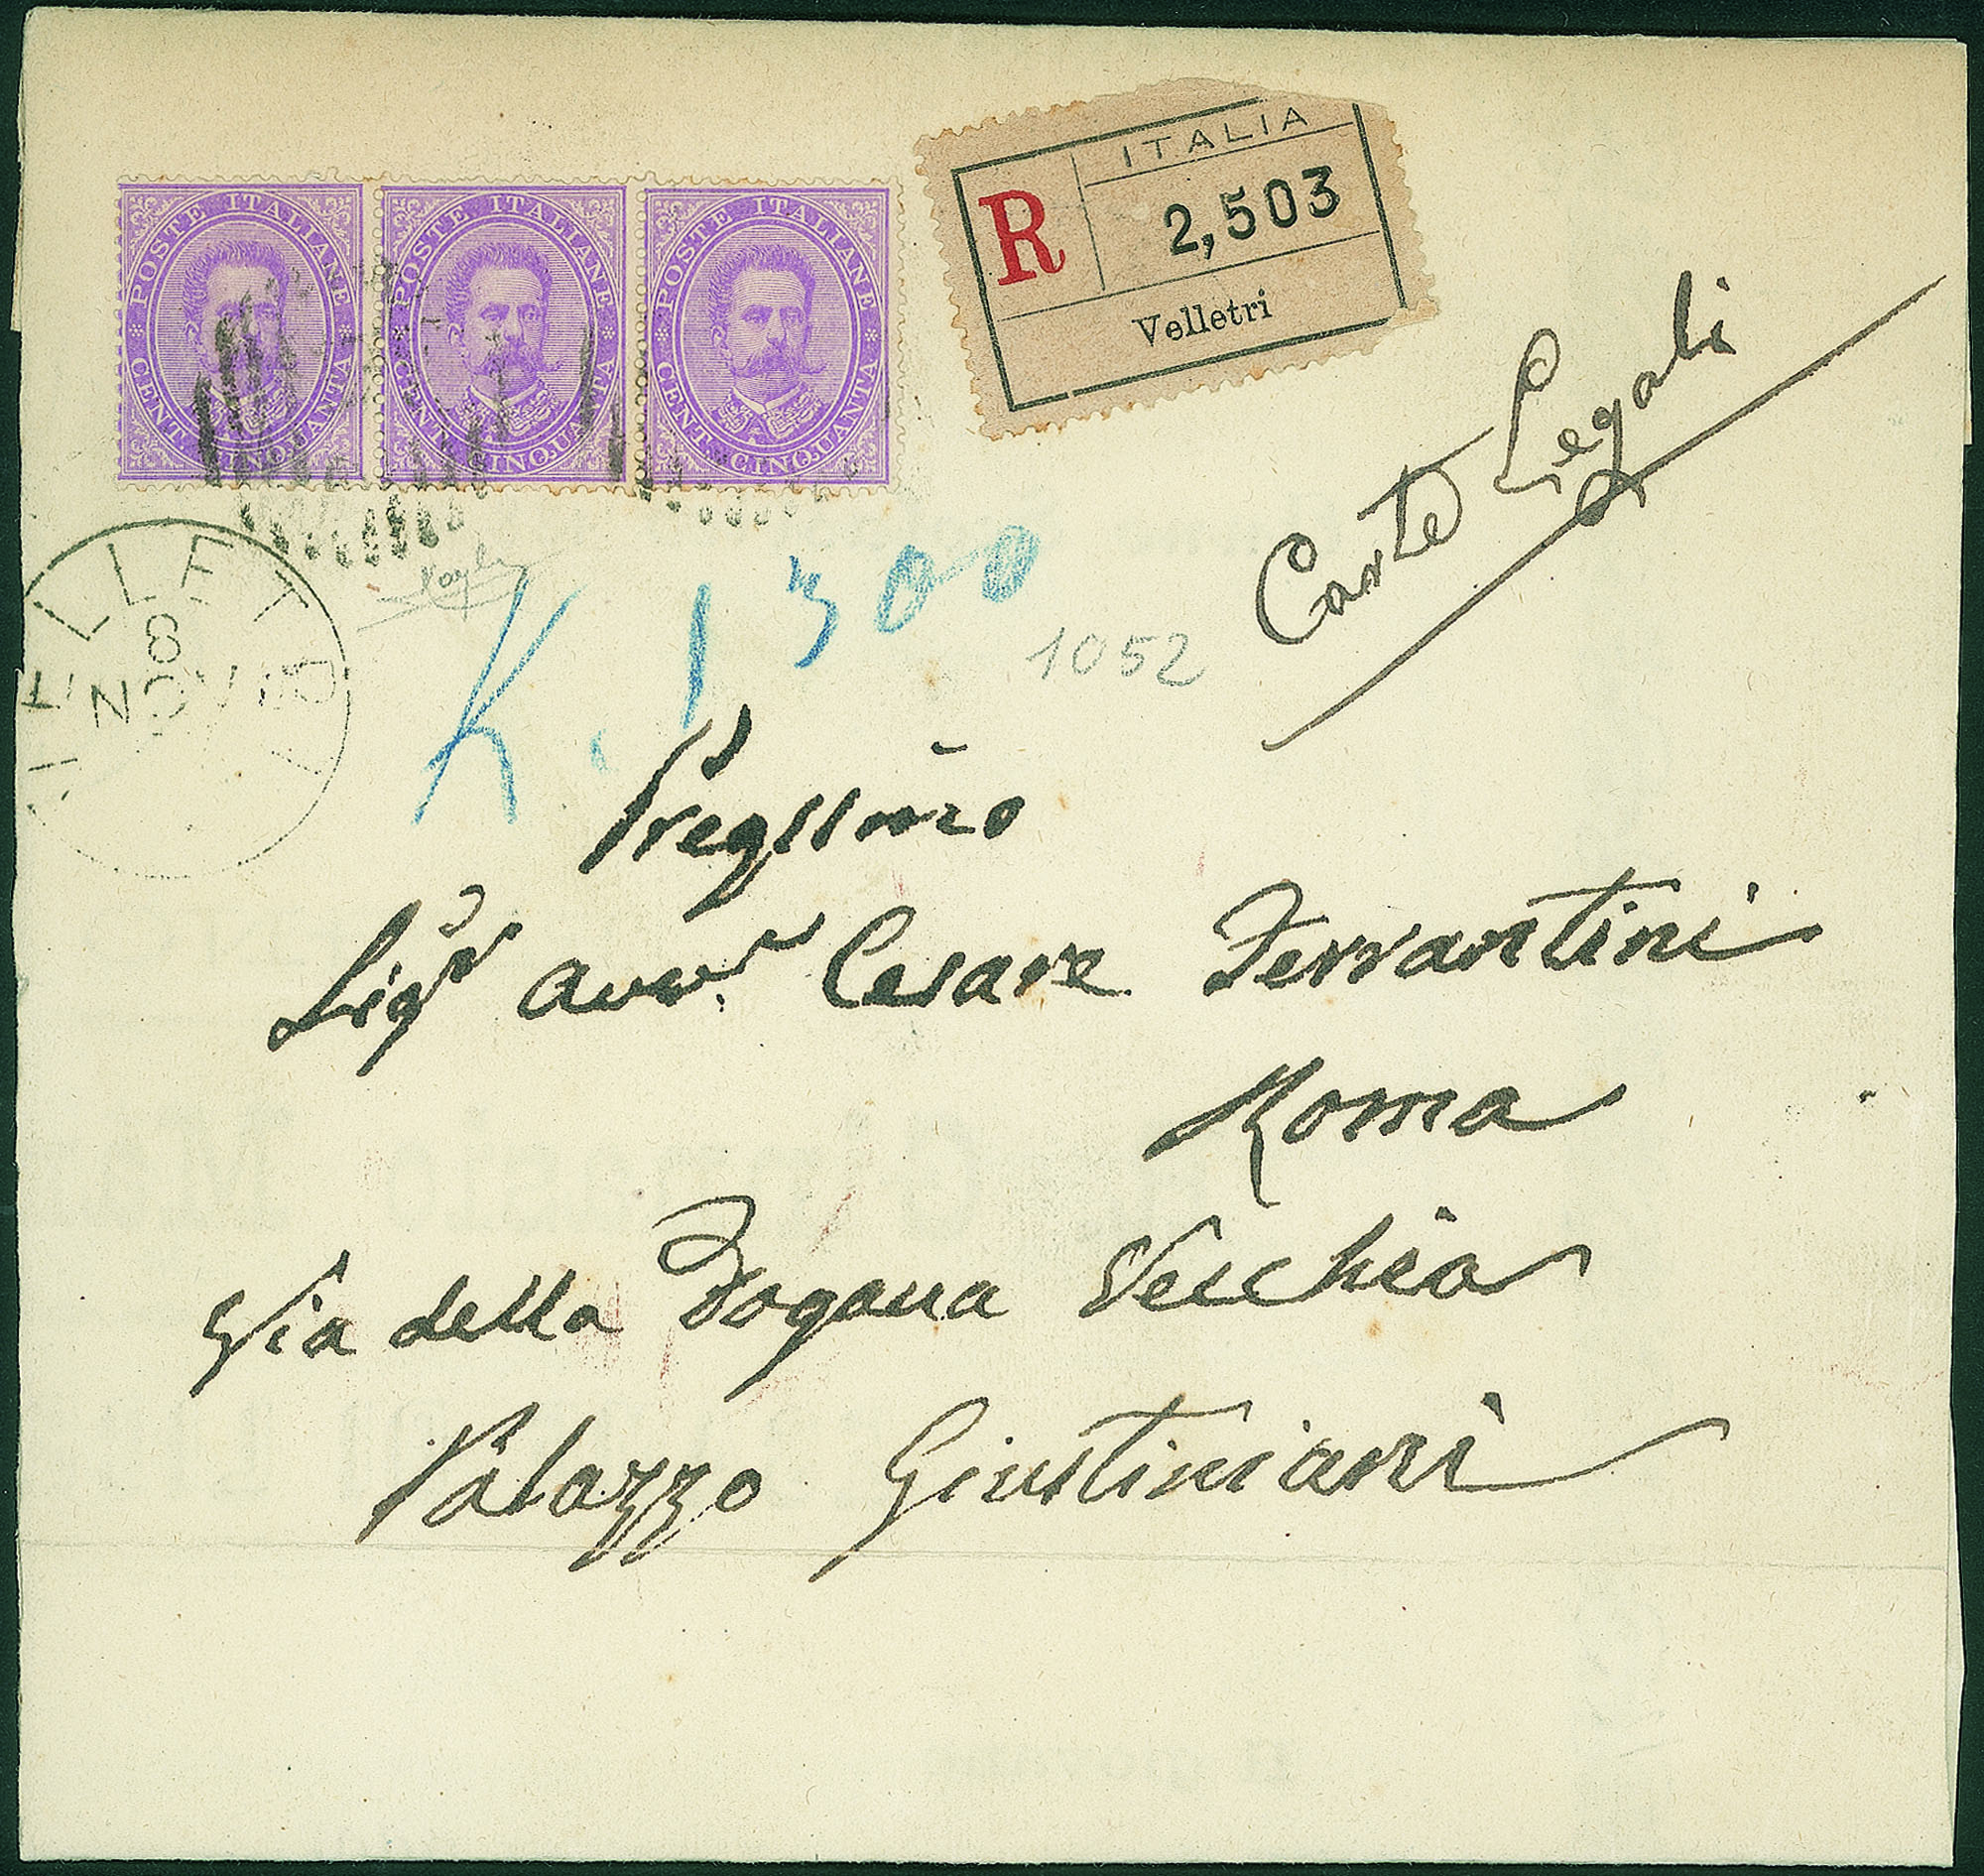 POSTE ITALIANE CENT. CINQUANTA
POSTE ITALIANE CENT. CINQUANTA
POSTE ITALIANE CENT. CINQUANTA
ITALIA
R 2,503
Velletri
Carte Legali
VELLETRI
8
NOV
K. 1300
1052
Pregmo
Sigr Avvr Cesare Ferrantini
Roma
Via della Dogana Vecchia
Palazzo Giustiniani